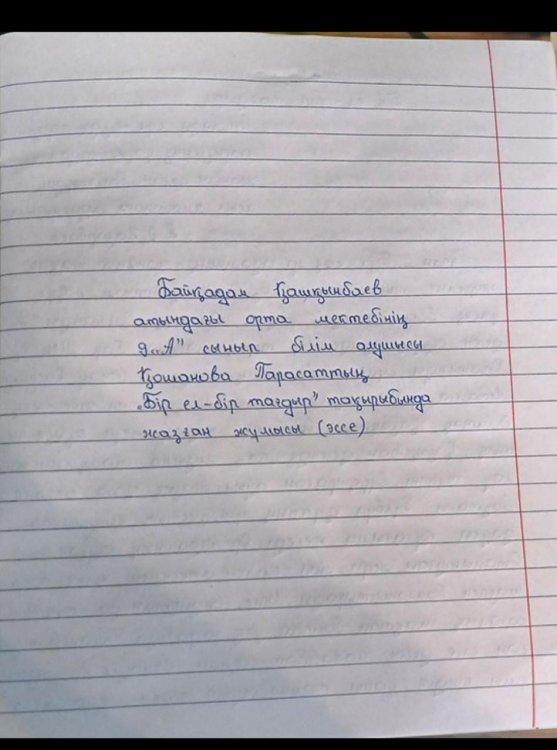 Байқадам Қашқынбаев
атындағы орта мектебінің
9 „А" сынып білім алушысы
Қошанова Парасаттың
„Бір ел-бір тағдыр" тақырыбында
жазған жұмысы (эссе)